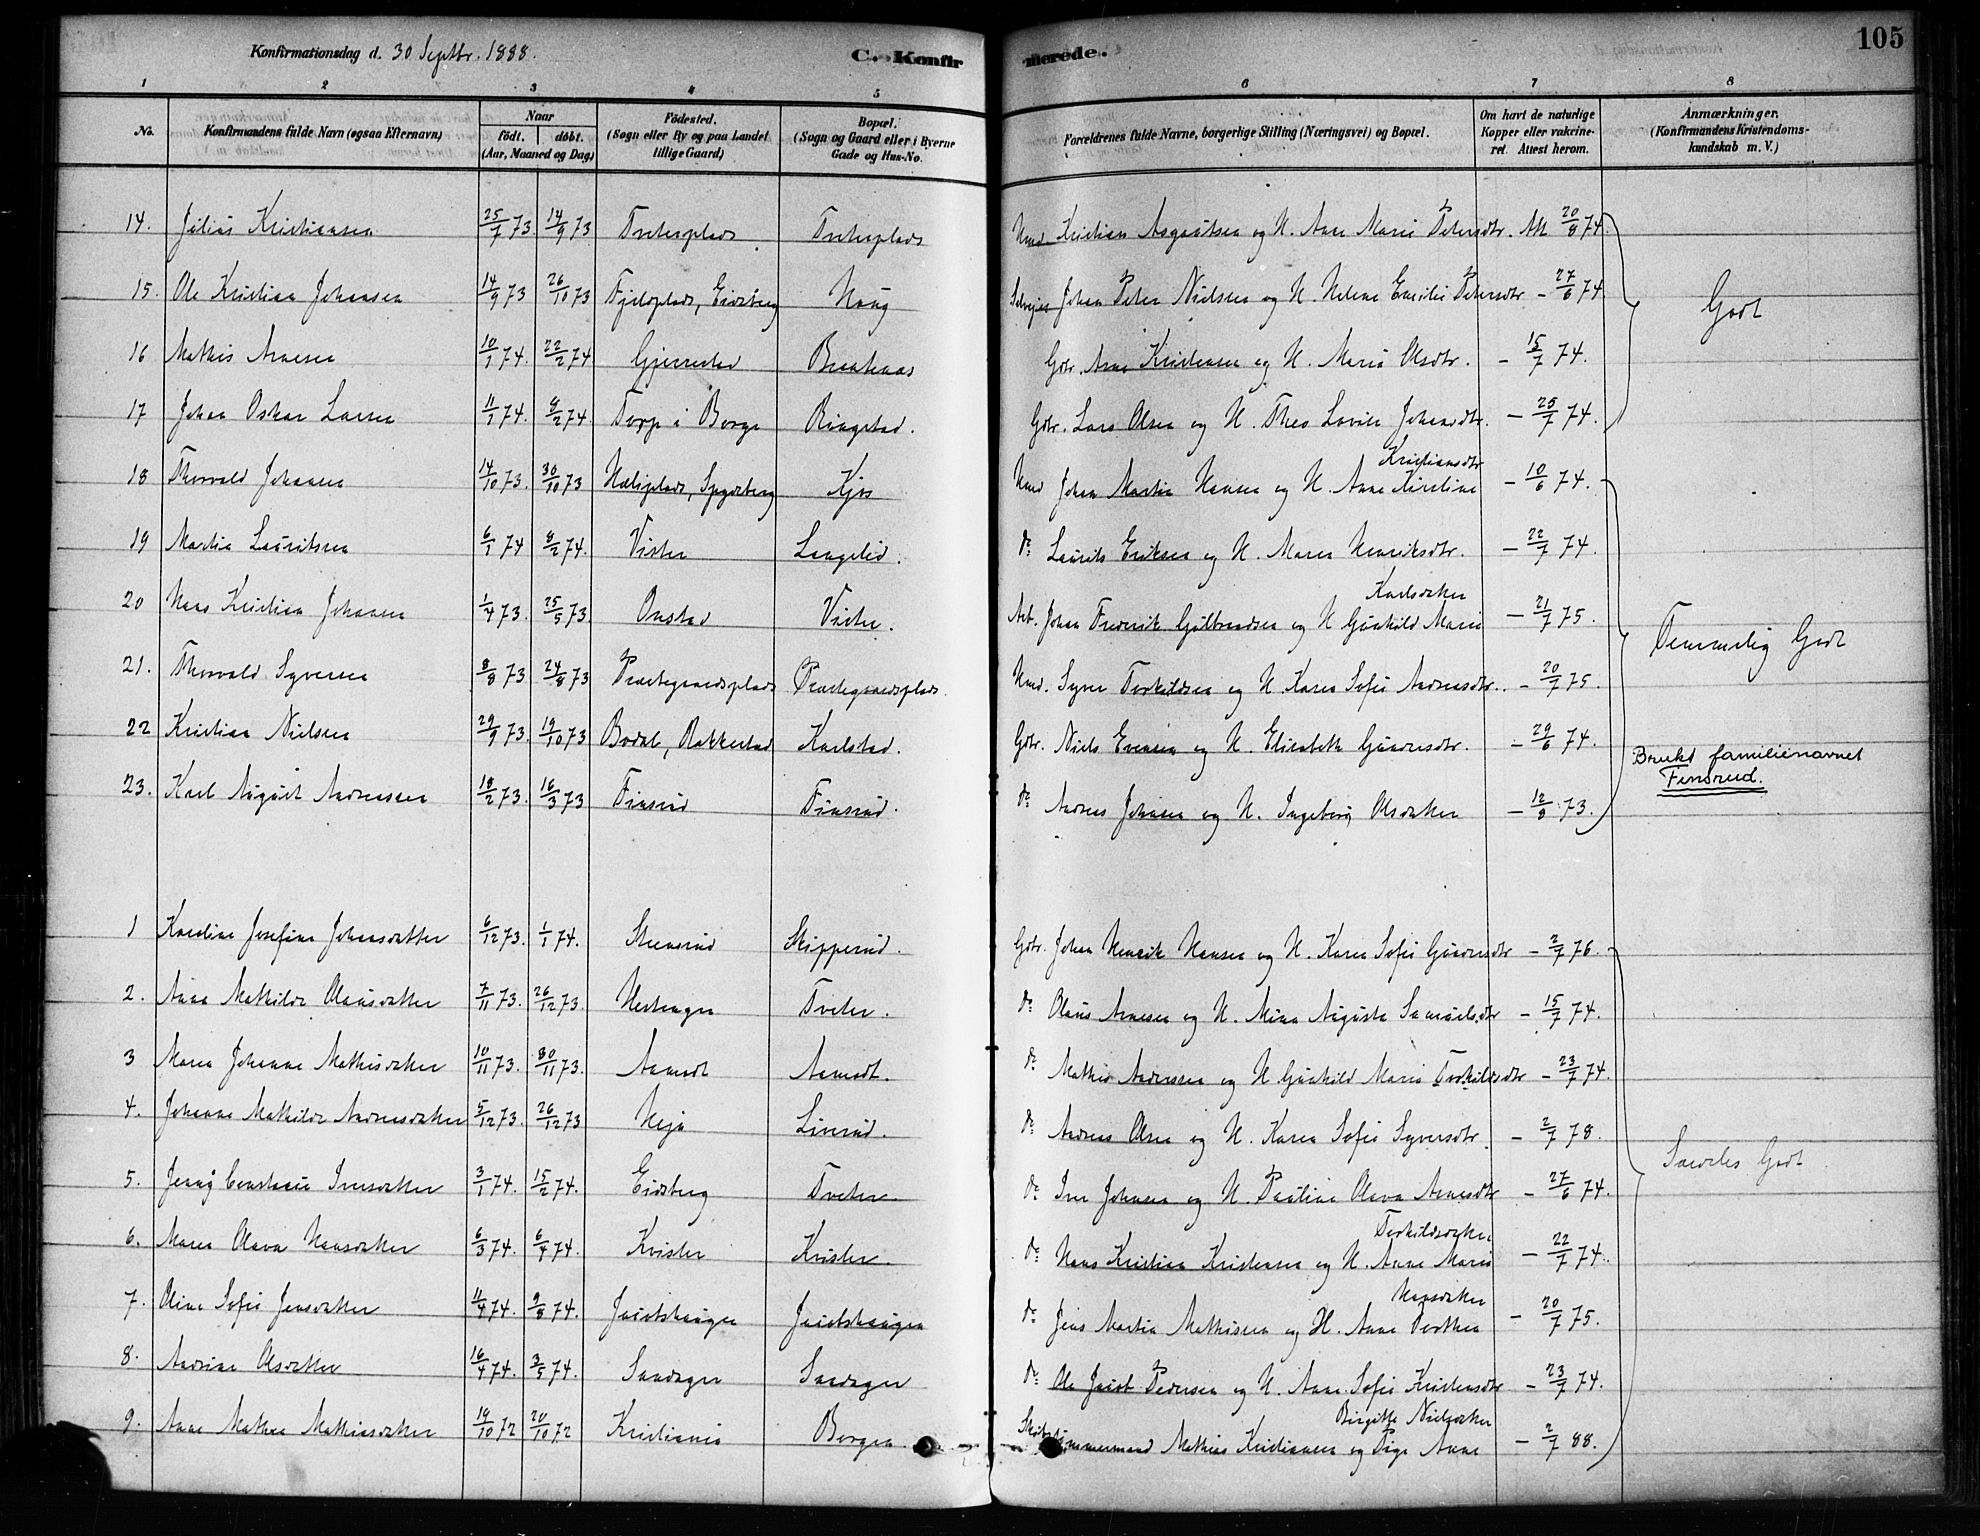 Konfirmationsdag d. 30 Septbr. 1888.
C. Konfirmerede.
105
1 2 3 4 5 6 7 8
No.
Konfirmandens fulde Navn (ogsaa Efternavn)
Naar
født. døbt.
(Aar, Maaned og Dag)
Födested.
(Sogn eller By og paa Landet
tillige Gaard)
Bopæl.
(Sogn og Gaard eller i Byerne
Gade og Hus-No.
Forældrenes fulde Navne, borgerlige Stilling (Næringsvei) og Bopæl.
Om havt de naturlige
Kopper eller vakcine-
ret. Attest herom.
Anmærkninger.
(Konfirmandens Kristendoms-
kundskab m. V.)
14. Julius Kristiansen 25/7 73. 14/9 73 Tveterplads Tveterplads Hmd. Kristian Asgautsen og H. Anne Marie Petersdtr. Att 20/8 74.
15. Ole Kristian Johansen 14/9 73 26/10 73 Fjeldplads, Eidsberg Haug Selveier Johan Peter Nielsen og H. Helene Emilie Petersdtr – 27/6 74.
Godt
16 Mathis Arnesen 10/1 74. 22/2 74 Gjerrestad Brekaas Gdr. Arne Kristensen og H. Marie Olsdtr. – 15/7 74.
17 Johan Oskar Larsen 11/1 74. 9/2 74. Torp i Borge Ringstad. Gdr. Lars Olsen og H. Thea Lovise Johansdtr. – 25/7 74.
18 Thorvald Johansen 14/10 73. 30/10 73 Spydeberg Kjos Hmd Johan Martin Hansen og H. Anne Kirstine Kristiansdtr – 10/6 74.
19 Martin Lauritsen 6/1 74 8/2 74. Vister Langelid. do Laurits Eriksen og H. Maren Henriksdtr. – 22/7 74.
20 Hans Kristian Johansen 1/4 73. 25/5 73. Onstad Vister. Arb. Johan Frederik Gulbrandsen og H Gunhild Marie Karlsdatter – 21/7 75.
Temmelig Godt
21. Thorvald Syversen 8/8 73 24/8 73 Præstegaardsplads Præstegaardsplads. Hmd. Syver Torkildsen og H. Karen Sofie Andreasdtr. – 20/7 75.
22 Kristian Nielsen 29/9 73. 19/10 73 Bodal, Rakkestad Karlstad. Gdr. Niels Evensen og H. Elisabeth Gundersdtr. – 29/6 74.
Brukt familienavnet
Finsrud.
23. Karl August Andreasen 18/2 73. 16/3 73 Finsrud Finsrud. do Andreas Johnsen og H. Ingeborg Olsdatter – 12/8 73.
1 Karoline Josefine Johansdatter 6/12 73. 1/1 74. Skeensrud Skipperud. Gdr. Johan Henrik Hansen og H. Karen Sofie Gundersdtr – 2/7 76.
2. Anna Mathilde Olausdatter 7/11 73. 26/12 73. Hestengen Tveter. do Olaus Arnesen og H. Mina Augusta Samuelsdtr – 15/7 74.
3 Maren Johanne Mathisdatter 10/11 73. 30/11 73. Aamodt Aamodt. do Mathis Andersen og H. Gunhild Marie Torkildsdtr – 23/7 74.
4. Johanne Mathilde Andreasdatter 5/12 73. 26/12 73 Heja Linrud. do Andreas Olsen og H. Karen Sofie Syversdtr. – 2/7 78.
Særdeles Godt
5. Jenny Constance Iversdatter 3/1 74. 15/2 74. Eidsberg Tveter. do Iver Johnsen og H. Pauline Olava Arnesdtr – 27/6 74.
6. Maren Olava Hansdatter 6/3 74. 6/4 74. Kvister Kvister. do Hans Kristian Kristensen og H. Anne Marie Torkildsdatter – 22/7 74.
7. Oline Sofie Jensdatter 11/4 74. 9/8 74. Joietshaugen Joietshaugen do Jens Martin Mathisen og H. Anne Dorthea Hansdatter – 20/7 75.
8. Andrine Olsdatter 16/4 74. 3/5 74. Sandager Sandager do Ole Joiet Pedersen og H. Anne Sofie Kristensdtr – 23/7 74.
9. Anne Mathea Mathiasdatter 19/10 72 20/10 72 Kristiania Borgen. Skibstømmermand Mathias Kristiansen og Pige Anne Birgitte Nielsdatter – 2/7 88.